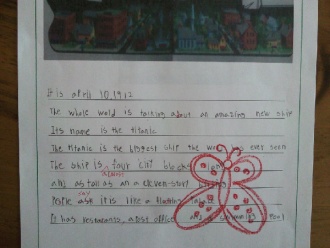 It is april 10,1912
The whole world is talking about an amazing new ship
Its name is the titanic
The titanic is the biggest ship the world has ever seen
The ship is four city blocks
almost
and as tall as an a eleven-story building
say
People ask it is like a floating
It has restaurants, a post office and a swimming pool